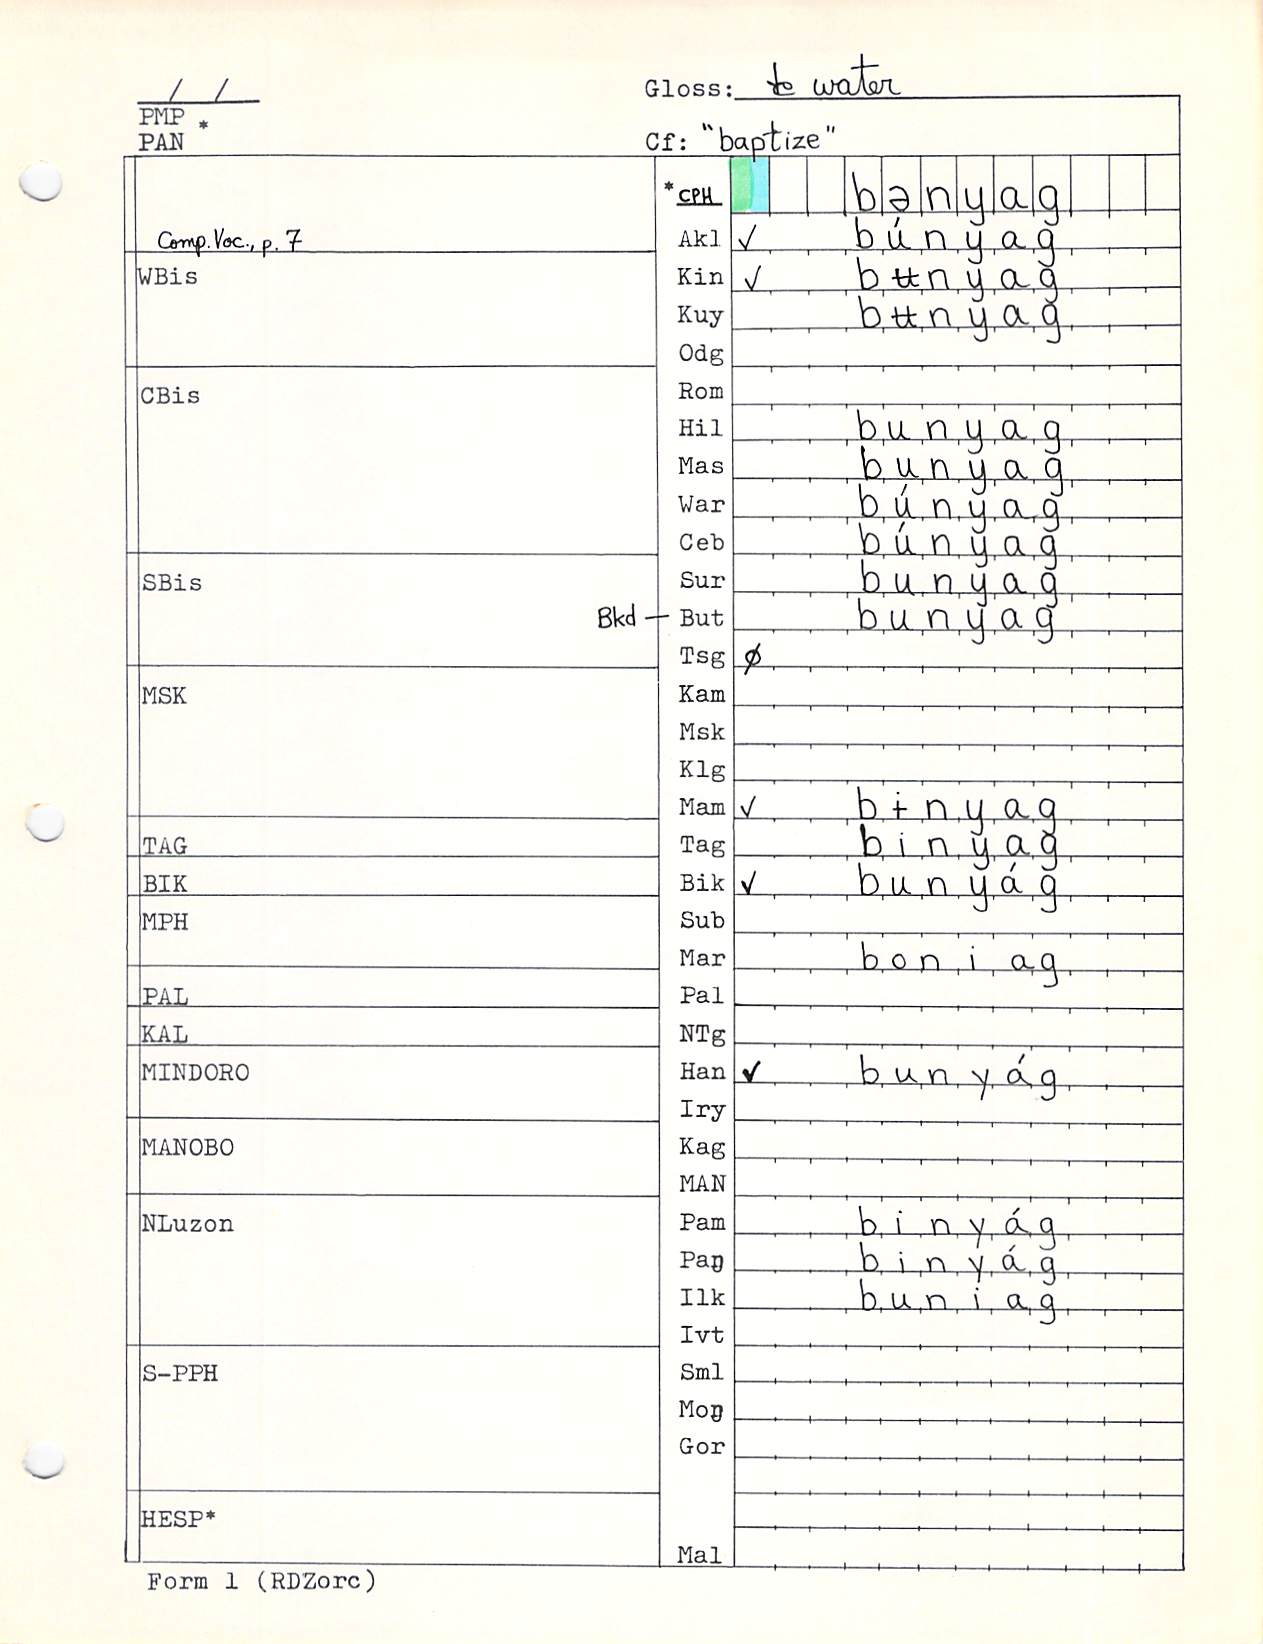 / /
Gloss: to water
PMP *
PAN
Cf: "baptize"
*CPH bənyag
Comp. Voc., p. 7
Akl ✓ búnyag
WBis
Kin ✓ bʉnyag
Kuy bʉnyag
Odg
CBis
Rom
Hil bunyag
Mas bunyag
War búnyag
Ceb búnyag
SBis
Sur bunyag
Bkd — But bunyag
Tsg ∅
MSK
Kam
Msk
Klg
Mam ✓ bɨnyag
TAG
Tag binyag
BIK
Bik ✓ bunyág
MPH
Sub
Mar boniag
PAL
Pal
KAL
NTg
MINDORO
Han ✓ bunyág
Iry
MANOBO
Kag
MAN
NLuzon
Pam binyág
Paŋ binyág
Ilk buniag
Ivt
S-PPH
Sml
Moŋ
Gor
HESP*
Mal
Form 1 (RDZorc)